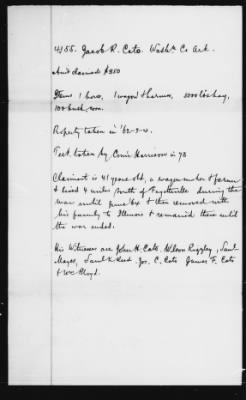 4155. Jacob R. Cato. Washn Co Ark.
Am't claimed $850
Items 1 horse, 1 wagon & harness, 5000 lbs hay,
100 bush corn.
Property taken in '62-3-4.
Test. taken by Comr Harrison in 73
Claimant is 41 years old, a wagon maker & farmer
& lived 4 miles South of Fayetteville during the
war until June 64 & then removed with
his family to Illinois & remained there until
the war ended.
His Witnesses are John H. Cato, Wilson Quigley, Saml
Mayes, Saml K Reed Jos. C. Cato James F. Cato
& Wm Lloyd.